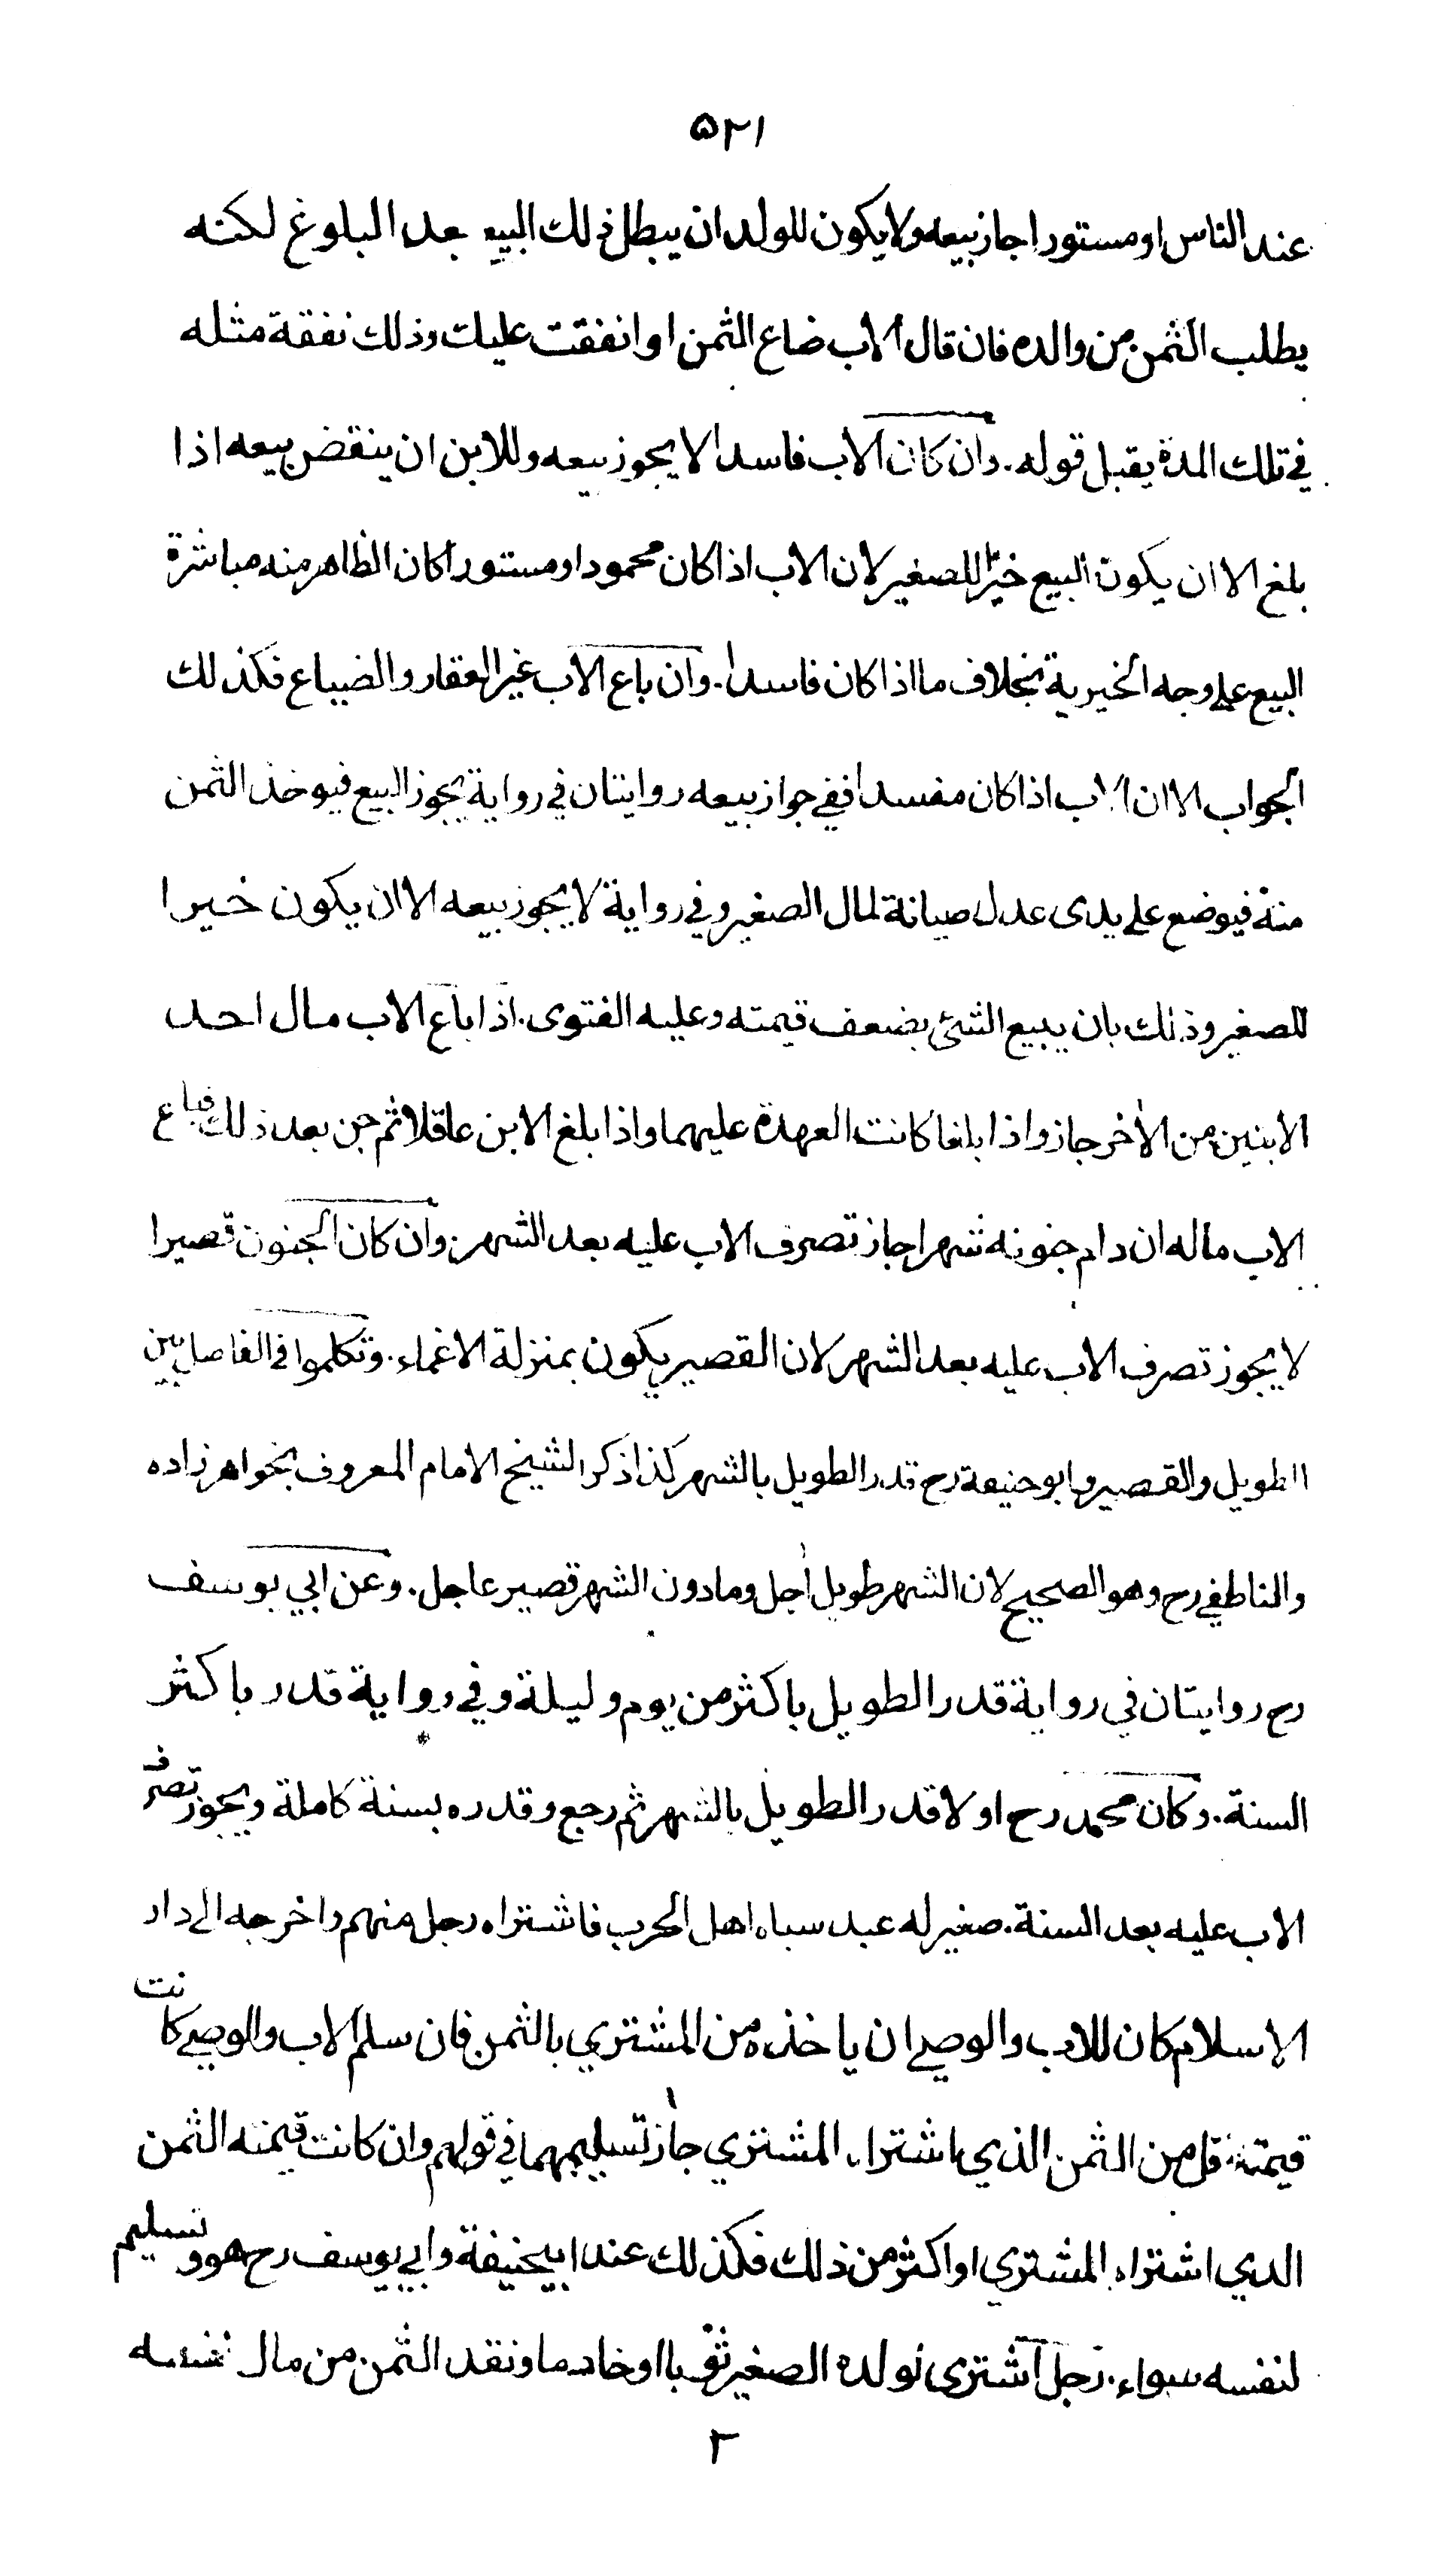 ۵۲۱
عند الناس او مستورا جاز بيعه ولا يكون للولد ان يبطل ذلك البيع بعد البلوغ لكنه
يطلب الثمن من والده فان قال الاب ضاع الثمن او انفقت عليك وذلك نفقة مثله
في تلك المدة يقبل قوله. وان كان الاب فاسدا لا يجوز بيعه وللابن ان ينقض بيعه اذا
بلغ الا ان يكون البيع خيرا للصغير لان الاب اذا كان محمودا او مستورا كان الظاهر منه مباشرة
البيع على وجه الخيرية بخلاف ما اذا كان فاسدا. وان باع الاب غير العقار والضياع فكذلك
الجواب الا ان الاب اذا كان مفسدا ففي جواز بيعه روايتان في رواية يجوز البيع فيوخذ الثمن
منه فيوضع على يدى عدل صيانة لمال الصغير وفي رواية لا يجوز بيعه الا ان يكون خيرا
للصغير وذلك بان يبيع الشئ بضعف قيمته وعليه الفتوى. اذا باع الاب مال احد
الابنين من الأخر جاز واذا بلغا كانت العهدة عليهما واذا بلغ الابن عاقلا ثم جن بعد ذلك فباع
الاب ماله ان دام جنونه شهرا جاز تصرف الاب عليه بعد الشهر. وان كان الجنون قصيرا
لا يجوز تصرف الاب عليه بعد الشهر لان القصير يكون بمنزلة الاغماء. وتكلموا في الفاصل بين
الطويل والقصير وابو حنيفة رح قدر الطويل بالشهر كذا ذكر الشيخ الامام المعروف بخواهر زاده
والناطفي رح وهو الصحيح لان الشهر طويل أجل وما دون الشهر قصير عاجل. وعن ابي يوسف
رح روايتان في رواية قدر الطويل باكثر من يوم وليلة وفي رواية قدر باكثر
السنة. وكان محمد رح اولا قدر الطويل بالشهر ثم رجع وقدره بسنة كاملة ويجوز تصرف
الاب عليه بعد السنة. صغير له عبد سباه اهل الحرب فاشتراه رجل منهم واخرجه الى دار
الاسلام كان للاب والوصي ان ياخذه من المشتري بالثمن فان سلم الاب والوصي كانت
قيمته اقل من الثمن الذي اشتراه المشتري جاز تسليمهما في قولهم وان كانت قيمته الثمن
الذي اشتراه المشتري او اكثر من ذلك فكذلك عند ابيحنيفة وابي يوسف رح هو وتسليم
لنفسه سواء. رجل اشترى لولده الصغير ثوبا او خادما ونقد الثمن من مال نفسه
۲